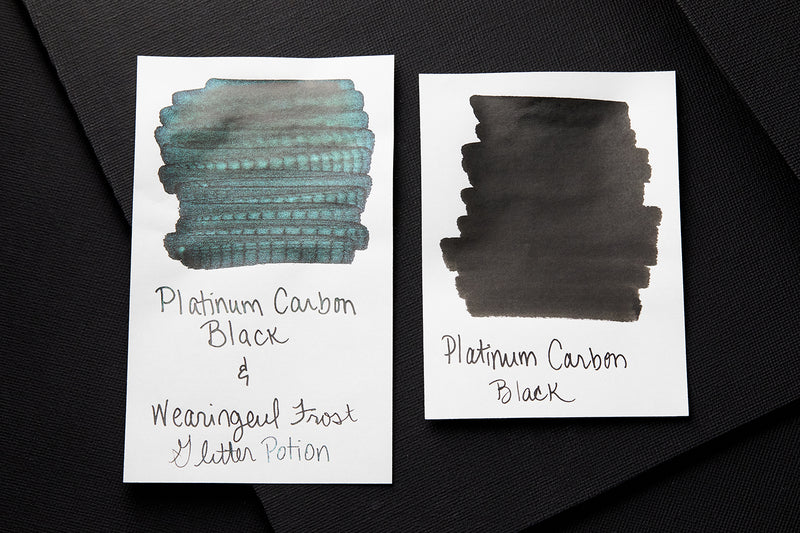 Platinum Carbon
Black
&
Wearingeul Frost
Glitter Potion
Platinum Carbon
Black